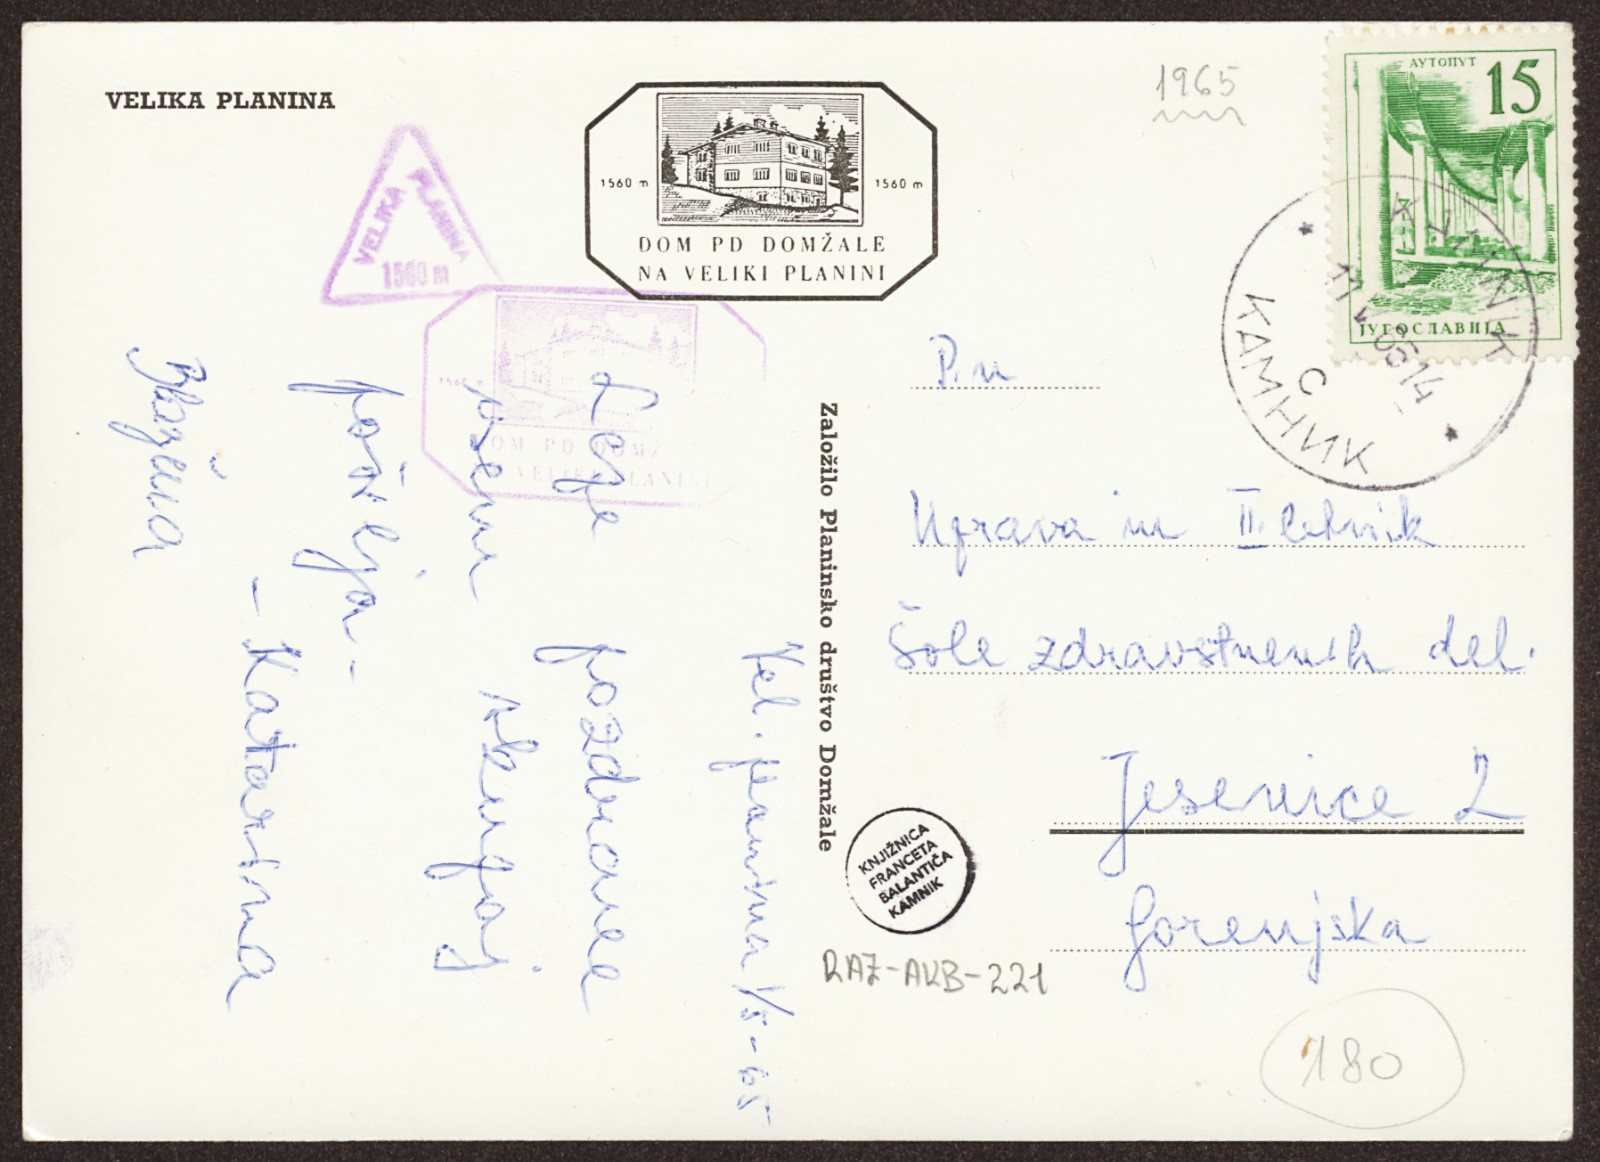 VELIKA PLANINA
1965
АУТОПУТ 15
ЈУГОСЛАВИЈА
KAMNIK
11 V 65 14
C
КАМНИК
VELIKA PLANINA
1560 m
1560 m 1560 m
DOM PD DOMŽALE
NA VELIKI PLANINI
DOM PD DOMŽ
VELIKI PLANINI
Založilo Planinsko društvo Domžale
Vel. planina 1/5-65
Lepe pozdrave
vsem skupaj
pošilja -
- Katarina
Blažena
P.n
Uprava in II. letnik
Šole zdravstvenih del.
Jesenice 2
Gorenjska
KNJIŽNICA
FRANCETA
BALANTIČA
KAMNIK
RAZ-AKB-221
180